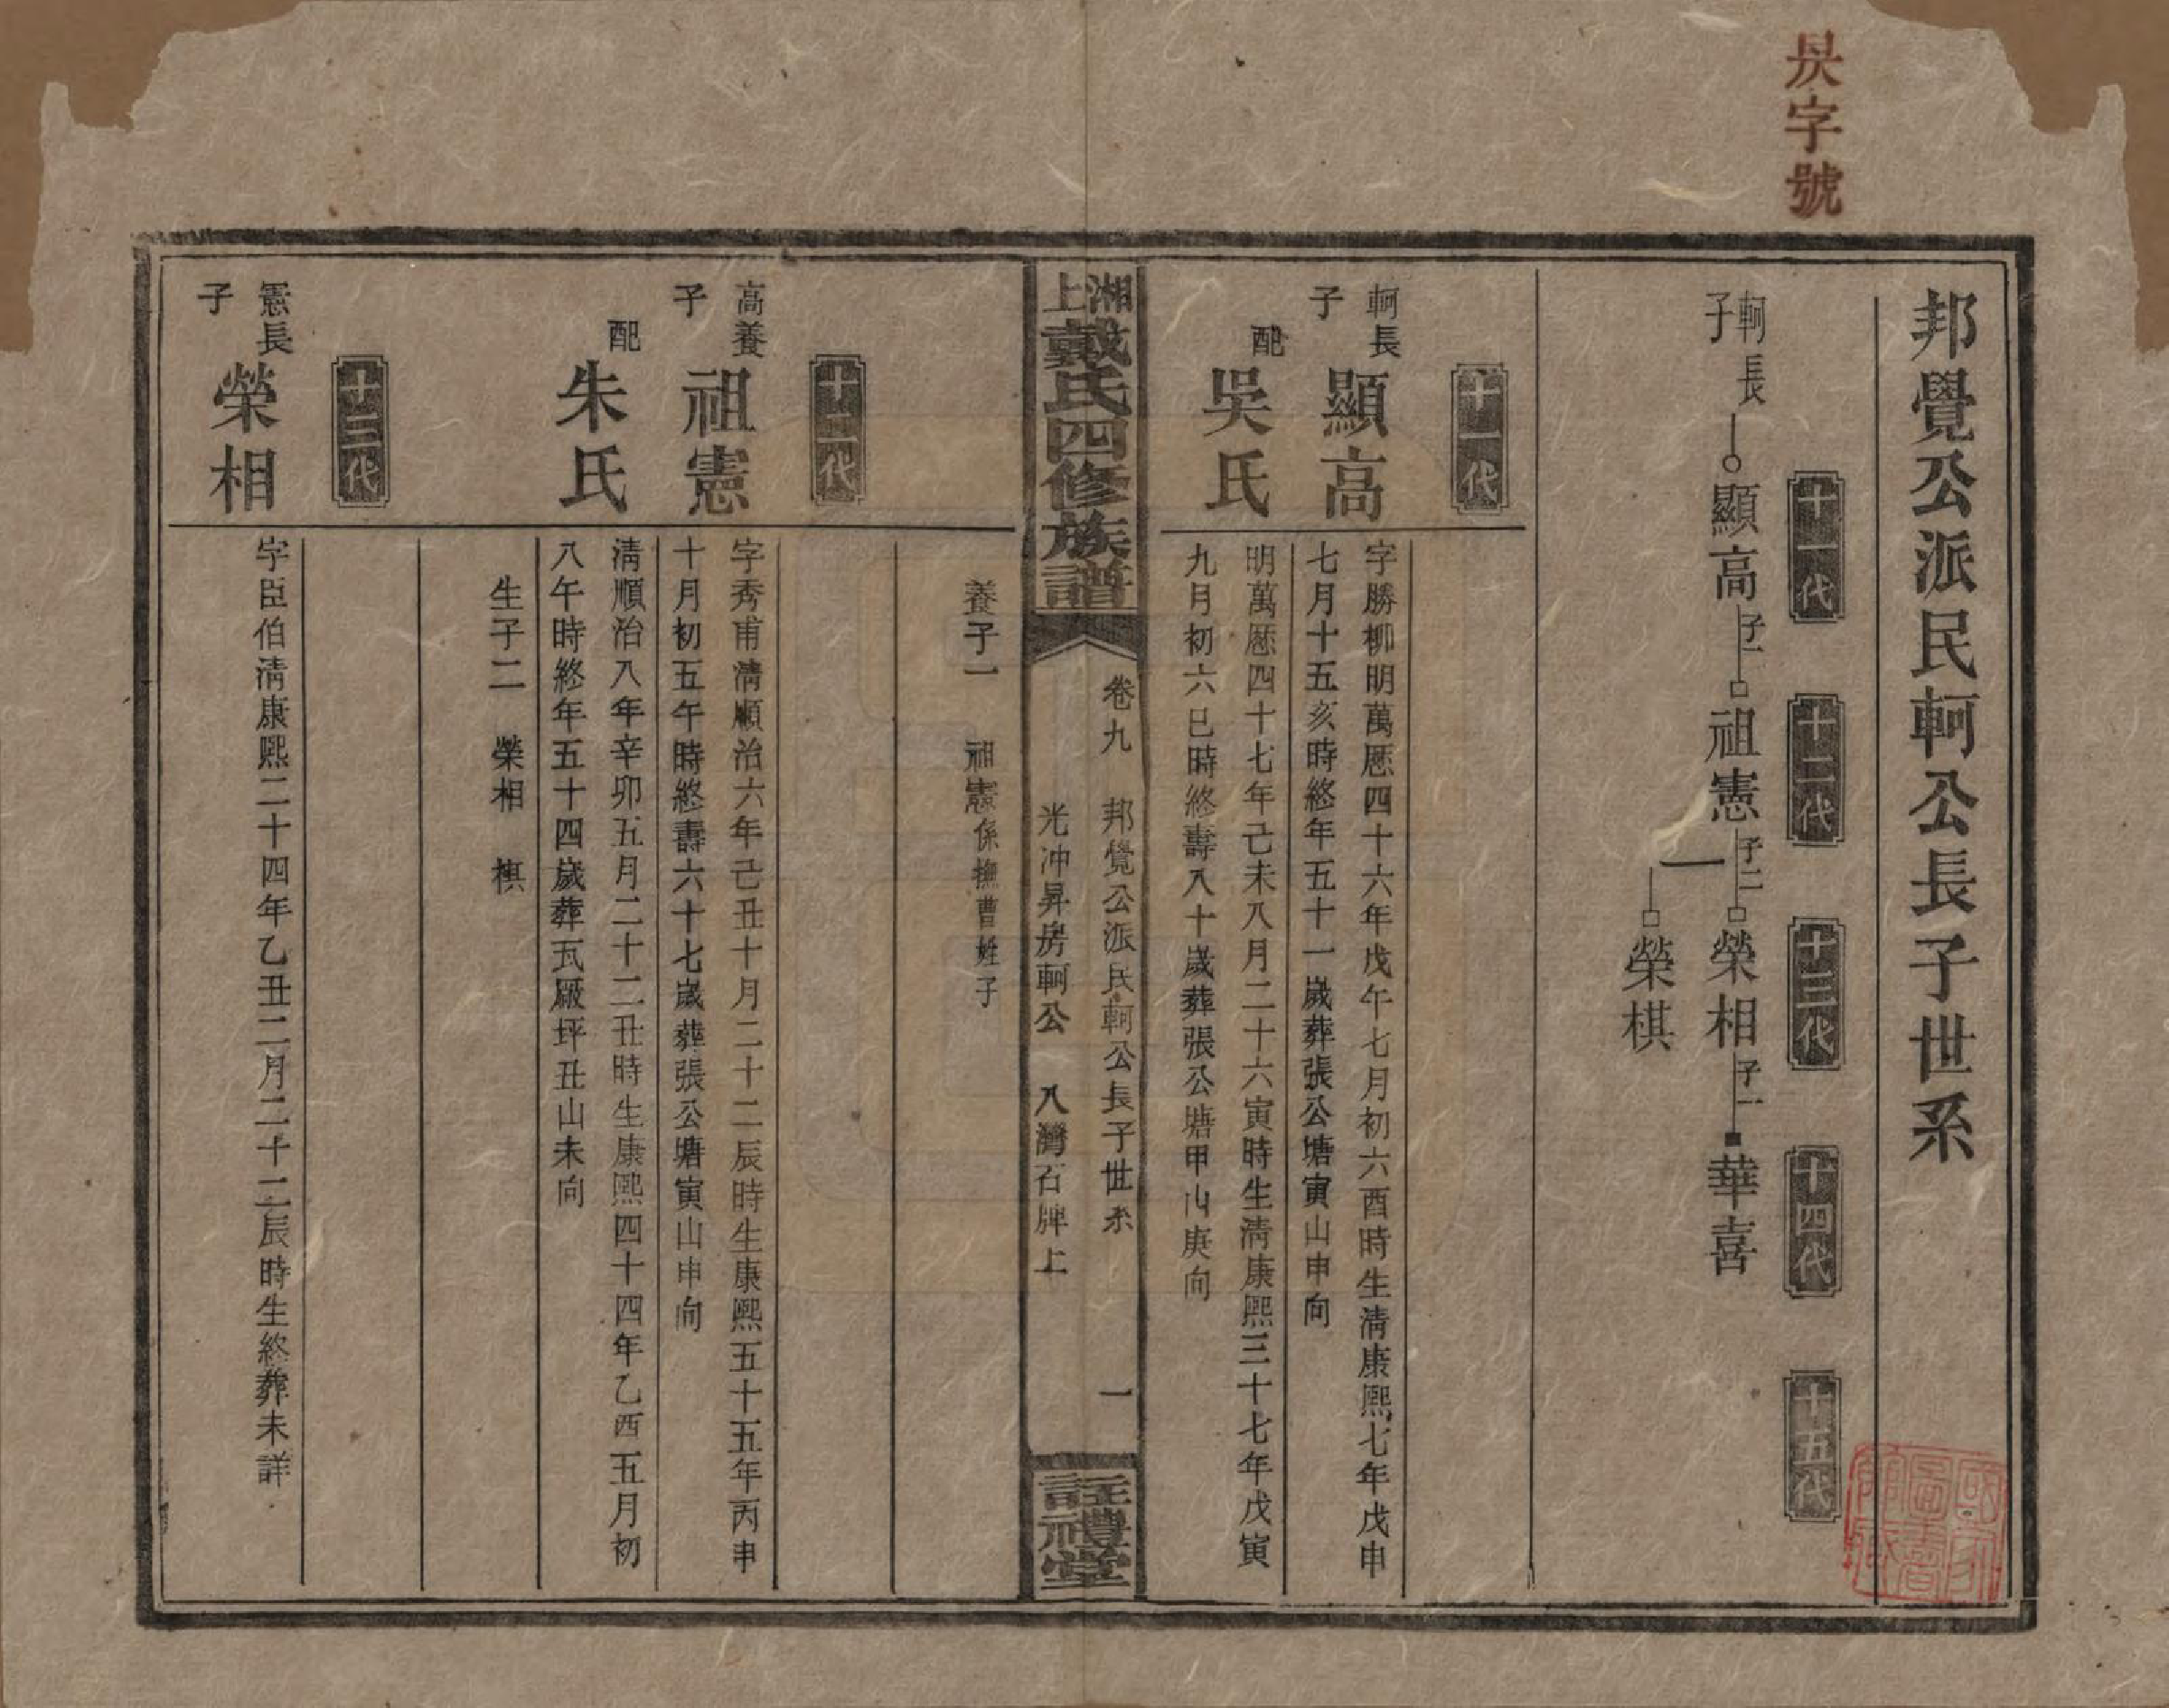 昃字號
邦覺公派民軻公長子世系
十一代
十二代
十三代
十四代
十五代
軻長子 顯高 子一 祖憲 子二 榮相 子一 華喜
榮棋
十一代
軻長子 顯高
字勝柳明萬厯四十六年戊午七月初六酉時生清康熙七年戊申
七月十五亥時終年五十一歲葬張公塘寅山申向
配 吳氏
明萬厯四十七年己未八月二十六寅時生清康熙三十七年戊寅
九月初六巳時終壽八十歲葬張公塘甲山庚向
湘上戴氏四修族譜
卷九 邦覺公派民軻公長子世系 一
光冲昇房軻公 八灣石牌上
註禮堂
養子一 祖憲係撫曹姓子
十二代
高養子 祖憲
字秀甫清順治六年己丑十月二十二辰時生康熙五十五年丙申
十月初五午時終壽六十七歲葬張公塘寅山申向
配 朱氏
清順治八年辛卯五月二十二丑時生康熙四十四年乙酉五月初
八午時終年五十四歲葬瓦厰坪丑山未向
生子二 榮相 棋
十三代
憲長子 榮相
字臣伯清康熙二十四年乙丑二月二十二辰時生終葬未詳